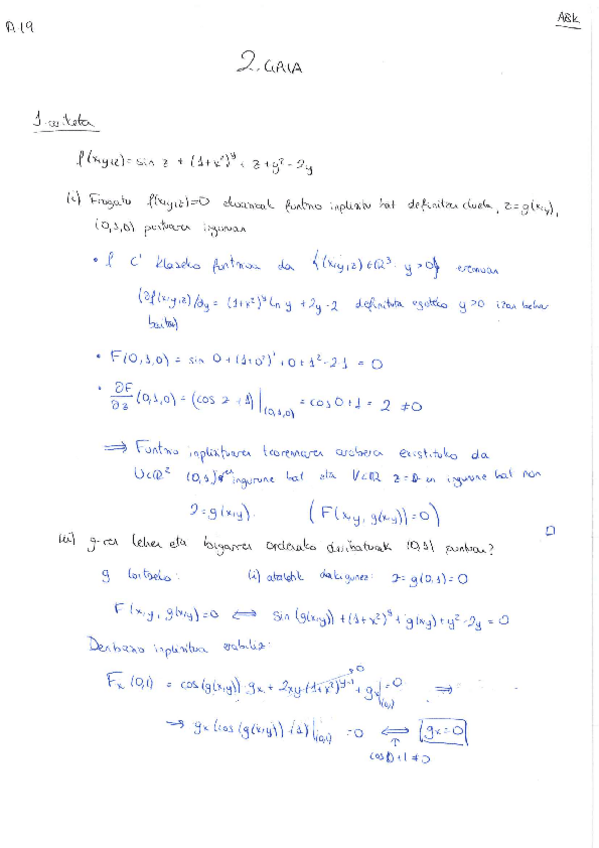 A.19
ABK.
2. GAIA
1. ariketa
f(x,y,z) = sin z + (1+x²)^y + z + y² - 2y
(i) Frogatu f(x,y,z)=0 ekuazioak funtzio inplizitu bat definitzen duela, z=g(x,y),
(0,1,0) puntuaren inguruan
• f C¹ klaseko funtzioa da {(x,y,z)∈ℝ³ : y>0} eremuan
(∂f(x,y,z)/∂y = (1+x²)^y ln y + 2y - 2 definituta egoteko y>0 izan behar
baita)
• F(0,1,0) = sin 0 + (1+0²)¹ + 0 + 1² - 2·1 = 0
• ∂F/∂z (0,1,0) = (cos z + 1)|(0,1,0) = cos 0 + 1 = 2 ≠ 0
⟹ Funtzio inplizituaren teoremaren arabera existituko da
U⊂ℝ² (0,1)-en ingurune bat eta V⊂ℝ z=0-en ingurune bat non
z=g(x,y). (F(x,y,g(x,y))=0)
(ii) g-ren lehen eta bigarren ordenako deribatuak (0,1) puntuan?
g lortzeko: (i) ataletik dakigunez: z=g(0,1)=0
F(x,y,g(x,y))=0 ⟺ sin(g(x,y)) + (1+x²)^y + g(x,y) + y² - 2y = 0
Deribazio inplizitua erabiliz:
F_x(0,1) = cos(g(x,y))·g_x + 2xy·(1+x²)^(y-1) + g_x|(0,1) = 0 ⟹
→0
→ g_x(cos(g(x,y)) + 1)|(0,1) = 0 ⟺ g_x=0
↑
cos 0 + 1 ≠ 0